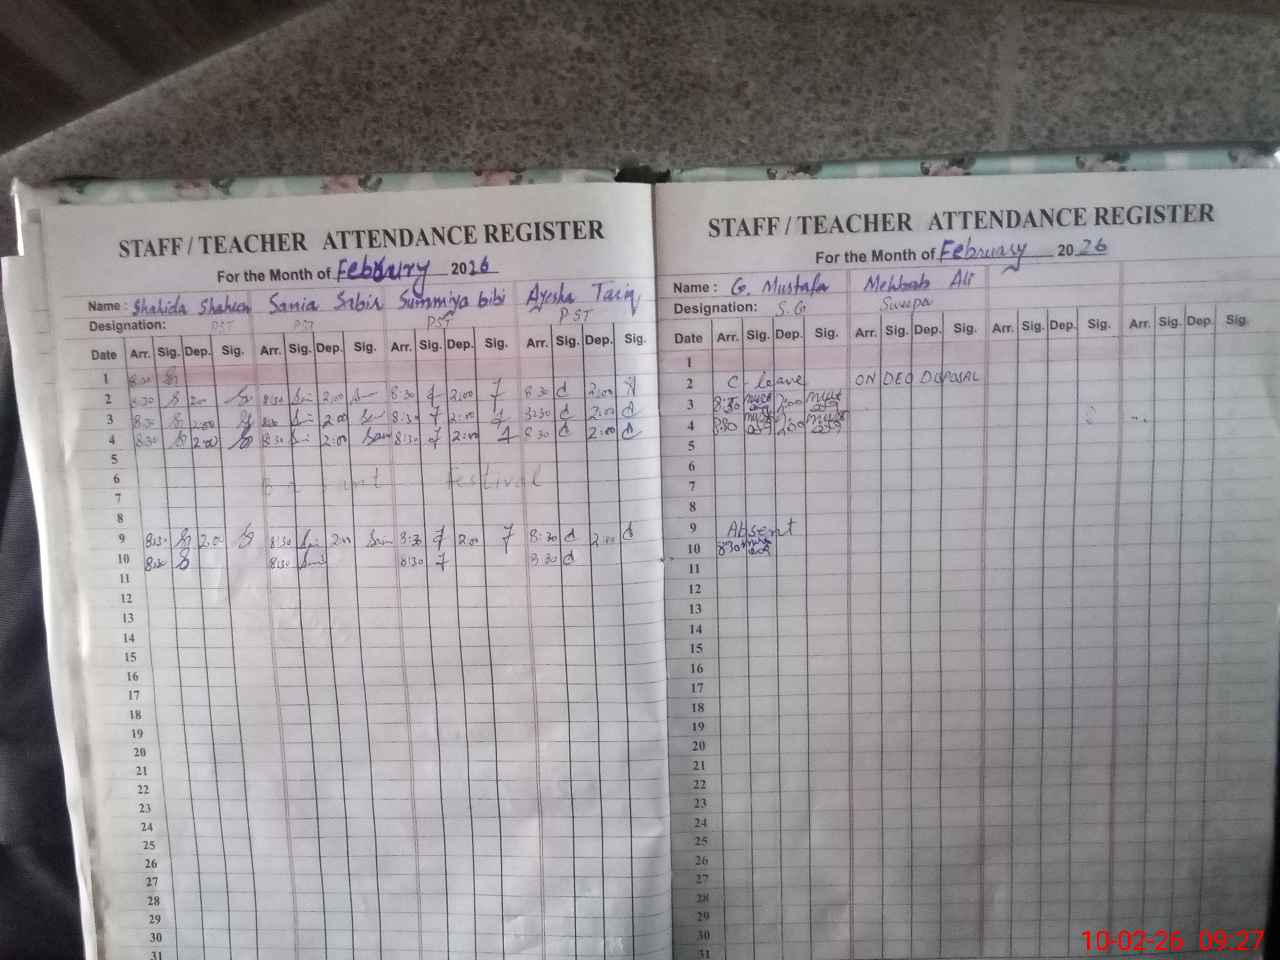 STAFF / TEACHER ATTENDANCE REGISTER
For the Month of February 2026
Name : Shahida Shaheen Sania Sabir Summiya bibi Ayesha Tariq
Designation: PST PST PST PST
Date Arr. Sig. Dep. Sig. Arr. Sig. Dep. Sig. Arr. Sig. Dep. Sig. Arr. Sig. Dep. Sig.
1 8:30
2 8:30 2:00 8:30 2:00 8:30 2:00 8:30 2:00
3 8:30 2:00 8:30 2:00 8:30 2:00 8:30 2:00
4 8:30 2:00 8:30 2:00 8:30 2:00 8:30 2:00
5
6 Festival
7
8
9 8:30 2:00 8:30 2:00 8:30 2:00 8:30 2:00
10 8:30 8:30 8:30 8:30
11
12
13
14
15
16
17
18
19
20
21
22
23
24
25
26
27
28
29
30
31
STAFF / TEACHER ATTENDANCE REGISTER
For the Month of February 2026
Name : G. Mustafa Mehboob Ali
Designation: S.G Sweepar
Date Arr. Sig. Dep. Sig. Arr. Sig. Dep. Sig. Arr. Sig. Dep. Sig. Arr. Sig. Dep. Sig.
1
2 C-leave ON DEO DISPOSAL
3 8:30 2:00
4 8:30 2:00
5
6
7
8
9 Absent
10 8:30
11
12
13
14
15
16
17
18
19
20
21
22
23
24
25
26
27
28
29
30
31
10-02-26 09:27